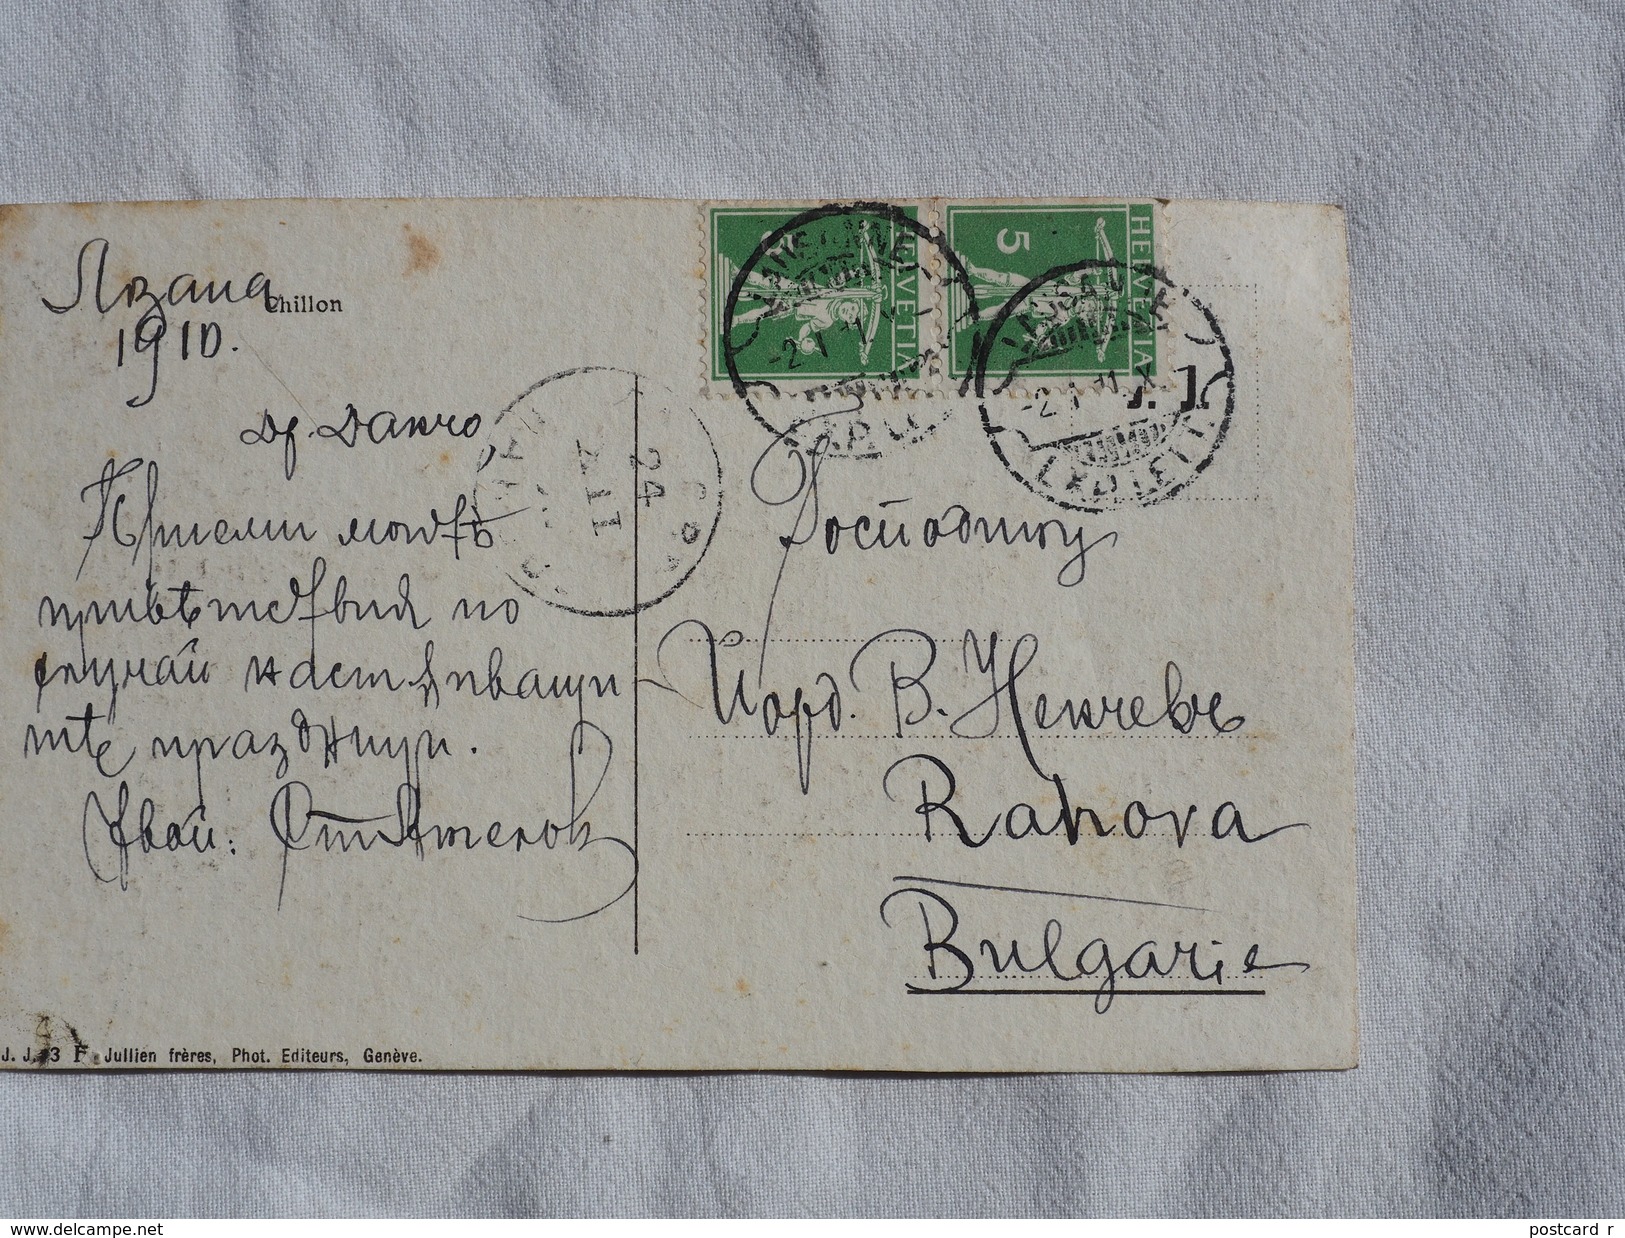 Лозана
Chillon
1910.
Др. Данчо,
Приели моитѣ
привѣтствия по
случай настѫпващи
тѣ празници.
Твой:
HELVETIA
5
HELVETIA
LAUSANNE
LAUSANNE
-2.I.11.
24
II
Господину
Йорд. В. Ненчевъ
Rahova
Bulgarie
J. J. 3 F Jullien frères, Phot. Editeurs, Genève.
www.delcampe.net
postcard_r